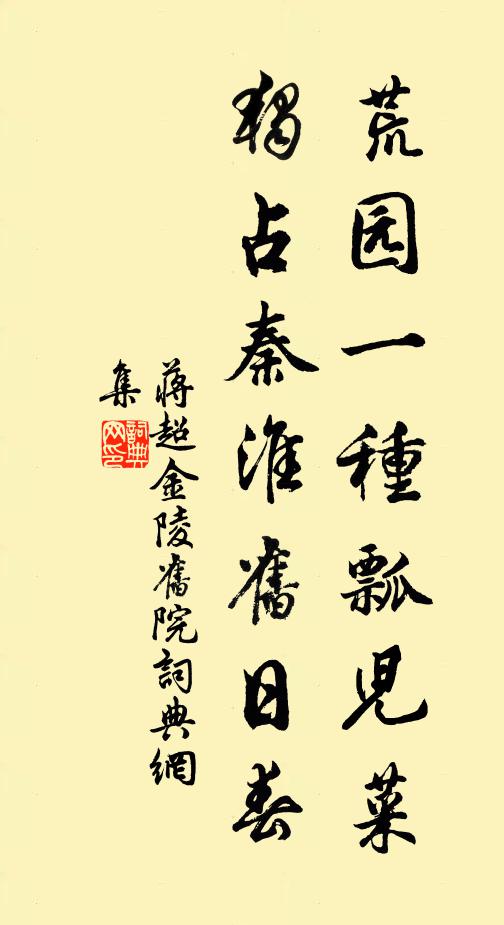 荒园一種瓢児菜
獨占秦淮舊日春
蔣超金陵舊院詞典網
集
詞典
网印